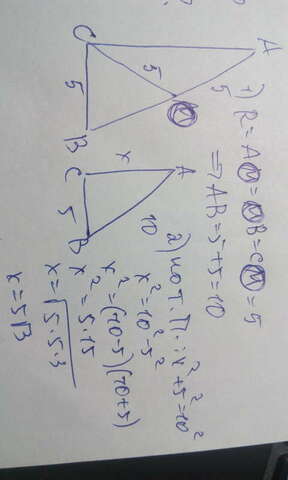 C
A
5
5
B
1) R = AM = MB = CM = 5
⇒ AB = 5 + 5 = 10
C
x
A
5
B
10
2) по т. П.: x² + 5² = 10²
x² = 10² - 5²
x² = (10-5)(10+5)
x² = 5·15
x = √5·5·3
x = 5√3